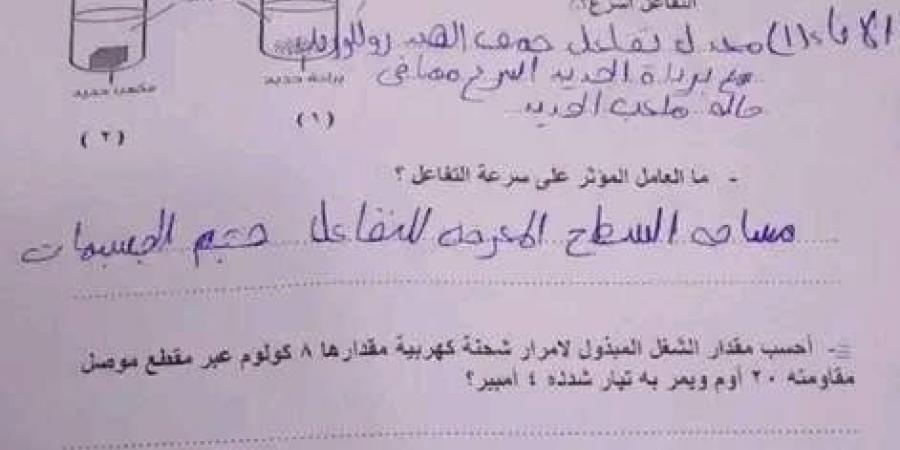 التفاعل أسرع؟
الإناء (١) معدل تفاعل حمض الهيدروكلوريك
مع برادة الحديد أسرع مما في
حالة مكعب الحديد
برادة حديد
مكعب حديد
(١)
(٢)
- ما العامل المؤثر على سرعة التفاعل ؟
مساحة السطح المعرضه للتفاعل حجم الجسيمات
- أحسب مقدار الشغل المبذول لامرار شحنة كهربية مقدارها ٨ كولوم عبر مقطع موصل
مقاومته ٢٠ أوم ويمر به تيار شدته ٤ أمبير؟